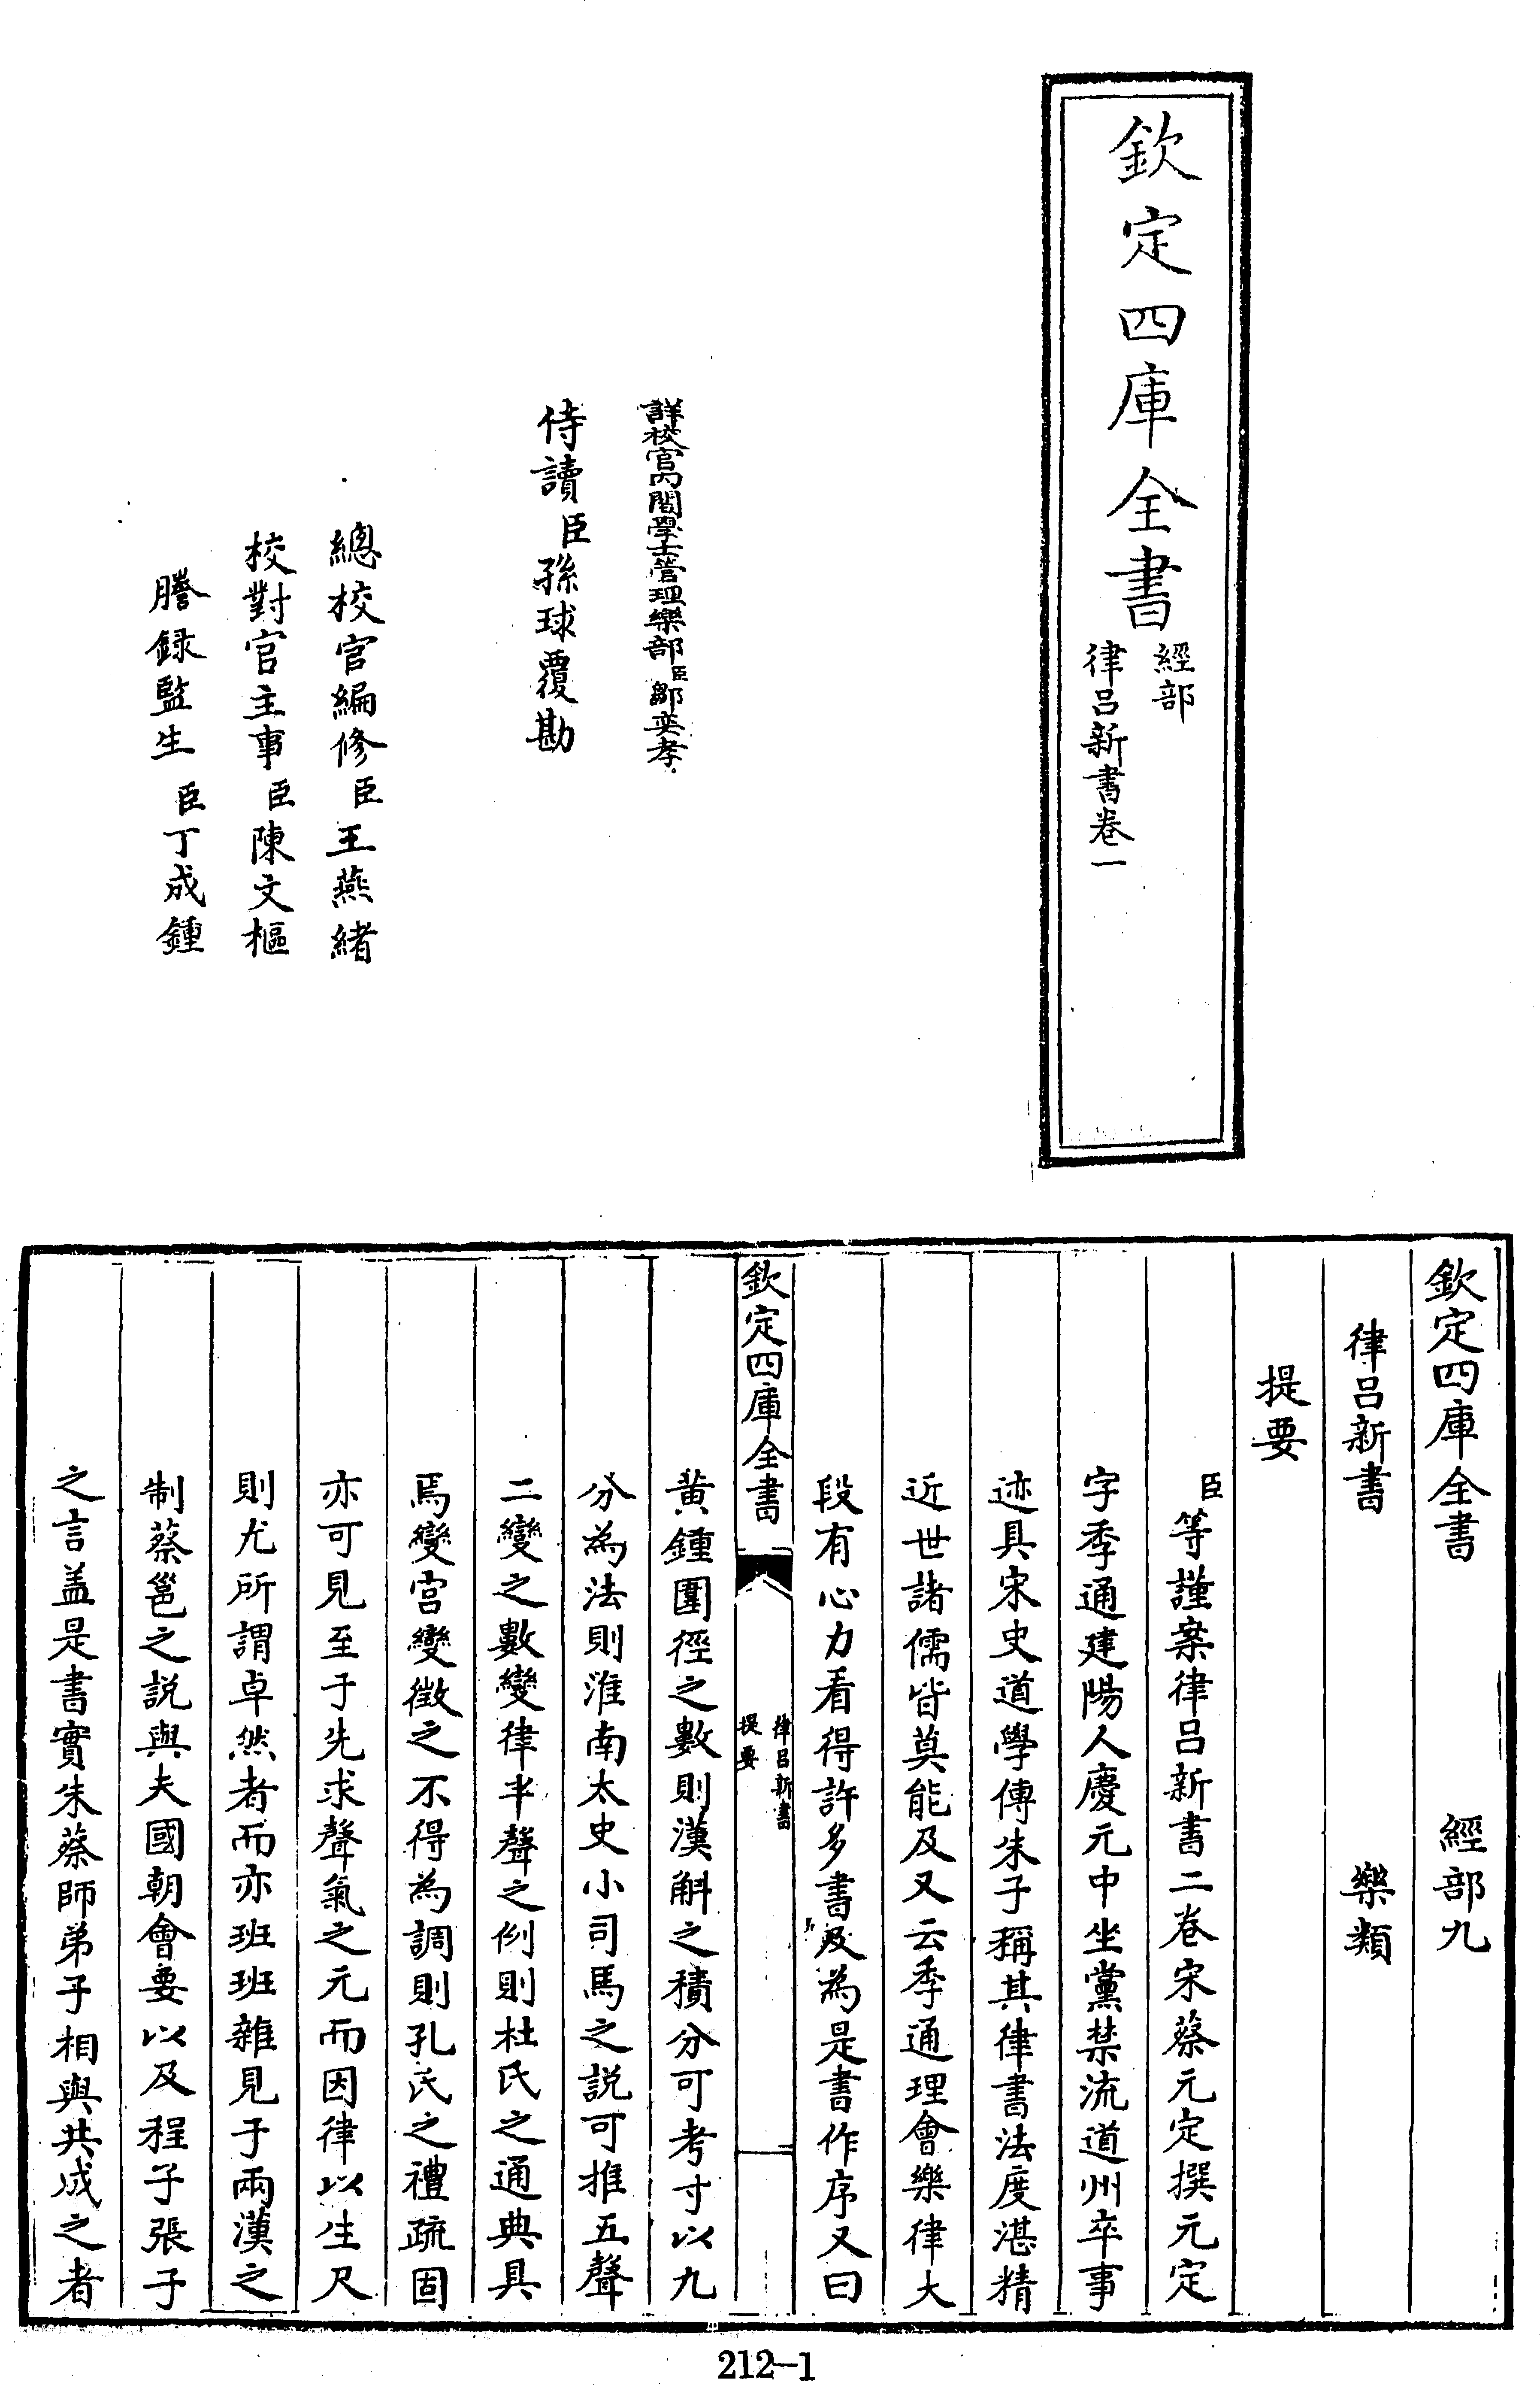 欽定四庫全書
經部
律呂新書卷一
詳校官內閣學士管理樂部臣鄒奕孝
侍讀臣孫球覆勘
總校官編修臣王燕緒
校對官主事臣陳文樞
謄錄監生臣丁成鍾
欽定四庫全書 經部九
律呂新書 樂類
提要
臣等謹案律呂新書二卷宋蔡元定撰元定
字季通建陽人慶元中坐黨禁流道州卒事
迹具宋史道學傳朱子稱其律書法度湛精
近世諸儒皆莫能及又云季通理會樂律大
段有心力看得許多書及為是書作序又曰
欽定四庫全書
律呂新書
提要
黃鍾圍徑之數則漢斛之積分可考寸以九
分為法則淮南太史小司馬之説可推五聲
二變之數變律半聲之例則杜氏之通典具
焉變宫變徵之不得為調則孔氏之禮疏固
亦可見至于先求聲氣之元而因律以生尺
則尤所謂卓然者而亦班班雜見于兩漢之
制蔡邕之説與夫國朝會要以及程子張子
之言盖是書實朱蔡師弟子相與共成之者
212-1